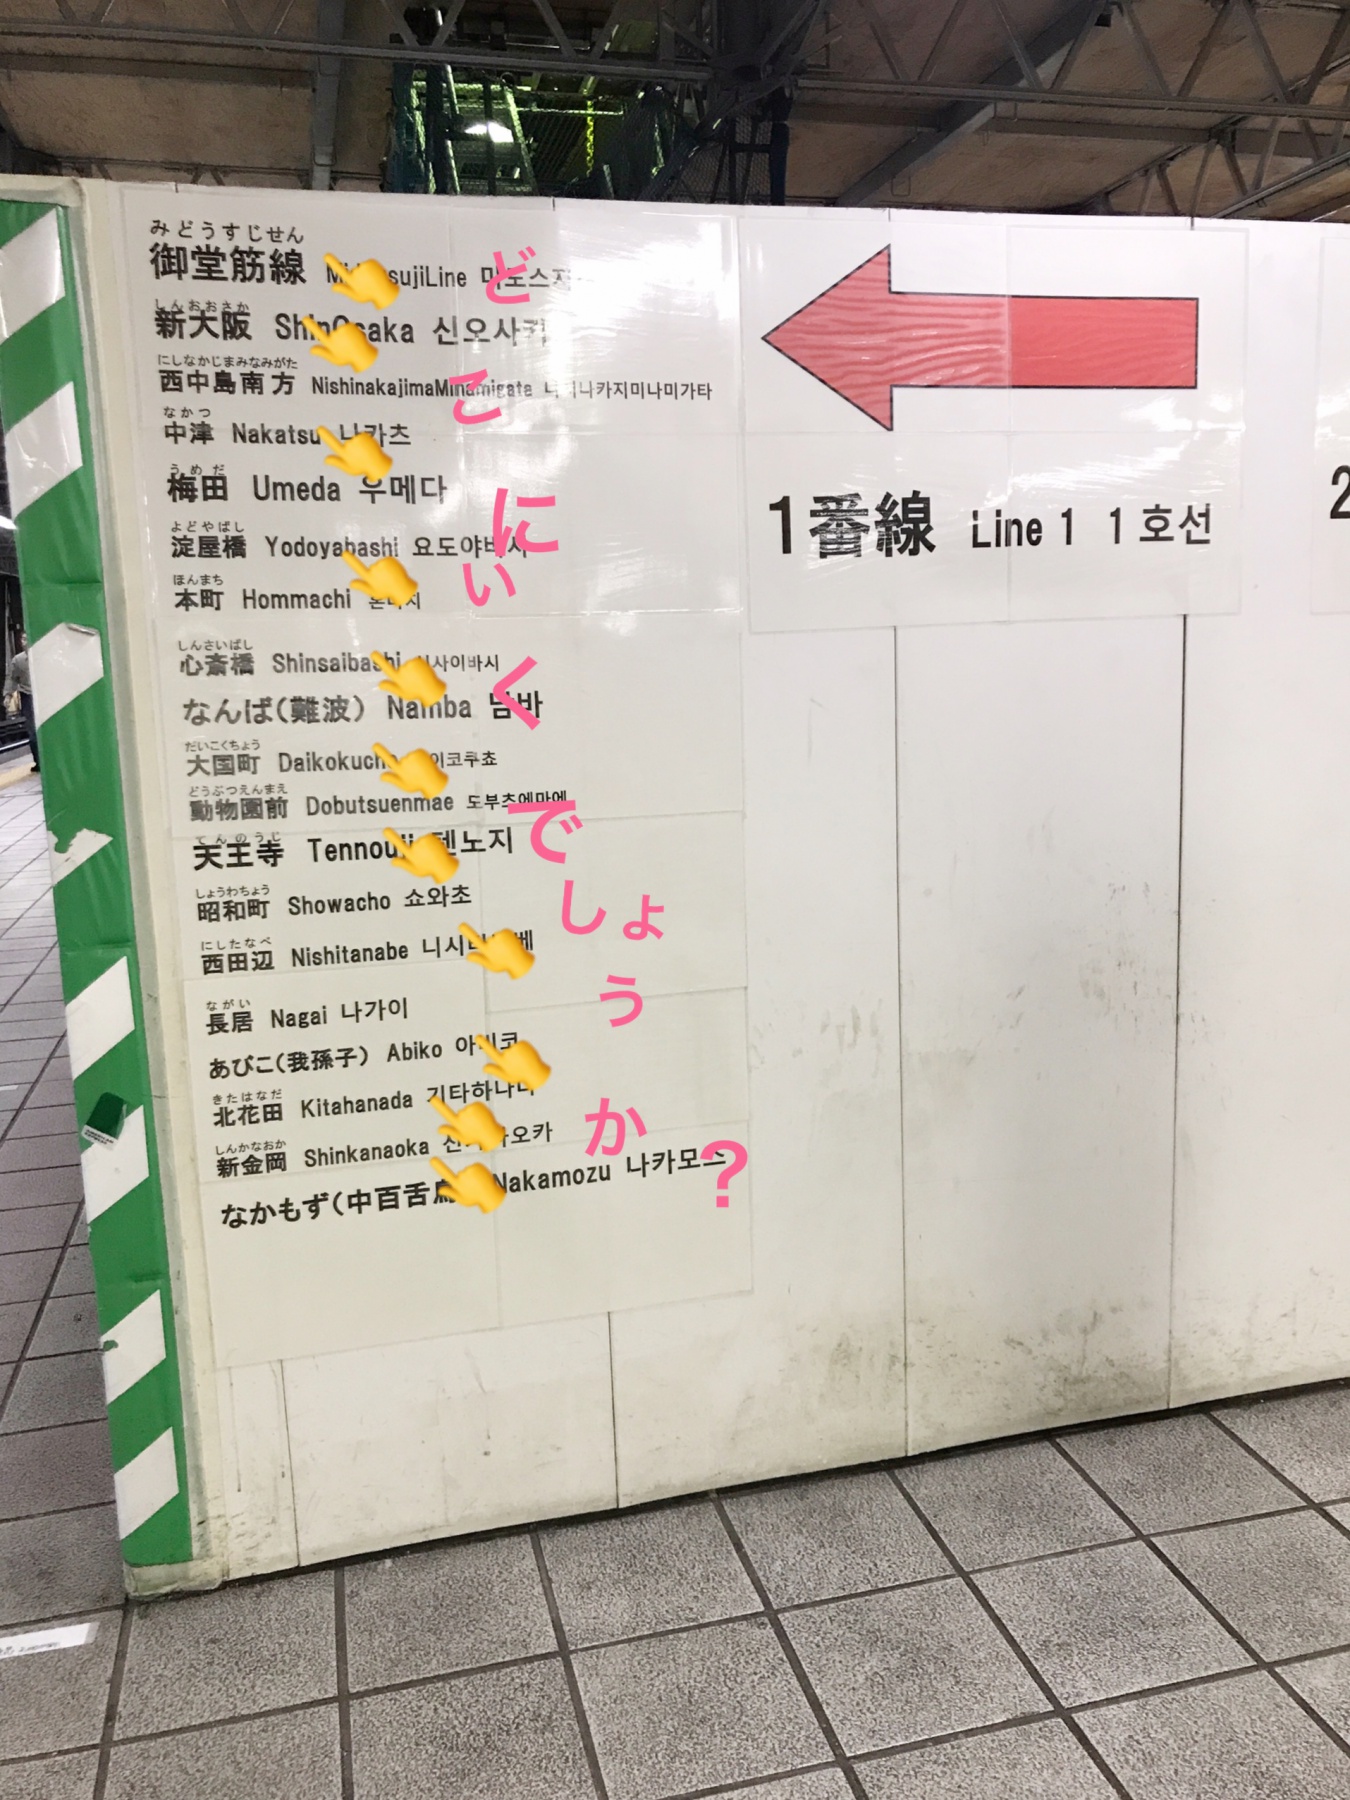 みどうすじせん
御堂筋線 Line
しんおおさか
新大阪 ShinOsaka 신오사카
にしなかじまみなみがた
西中島南方 NishinakajimaMinamigata 니시나카지미나미가타
なかつ
中津 Nakatsu 나카츠
うめだ
梅田 Umeda 우메다
よどやばし
淀屋橋 Yodoyabashi 요도야바시
ほんまち
本町 Hommachi
しんさいばし
心斎橋 Shinsaibashi 신사이바시
なんば(難波) Namba 남바
だいこくちょう
大国町 Daikokucho 다이코쿠쵸
どうぶつえんまえ
動物園前 Dobutsuenmae 도부츠에마에
てんのうじ
天王寺 Tennouji 텐노지
しょうわちょう
昭和町 Showacho 쇼와초
にしたなべ
西田辺 Nishitanabe
ながい
長居 Nagai 나가이
あびこ(我孫子) Abiko 아비코
きたはなだ
北花田 Kitahanada 기타하나다
しんかなおか
新金岡 Shinkanaoka
なかもず(中百舌鳥) Nakamozu 나카모즈
1番線 Line 1 1호선
2
どこにいくでしょうか?